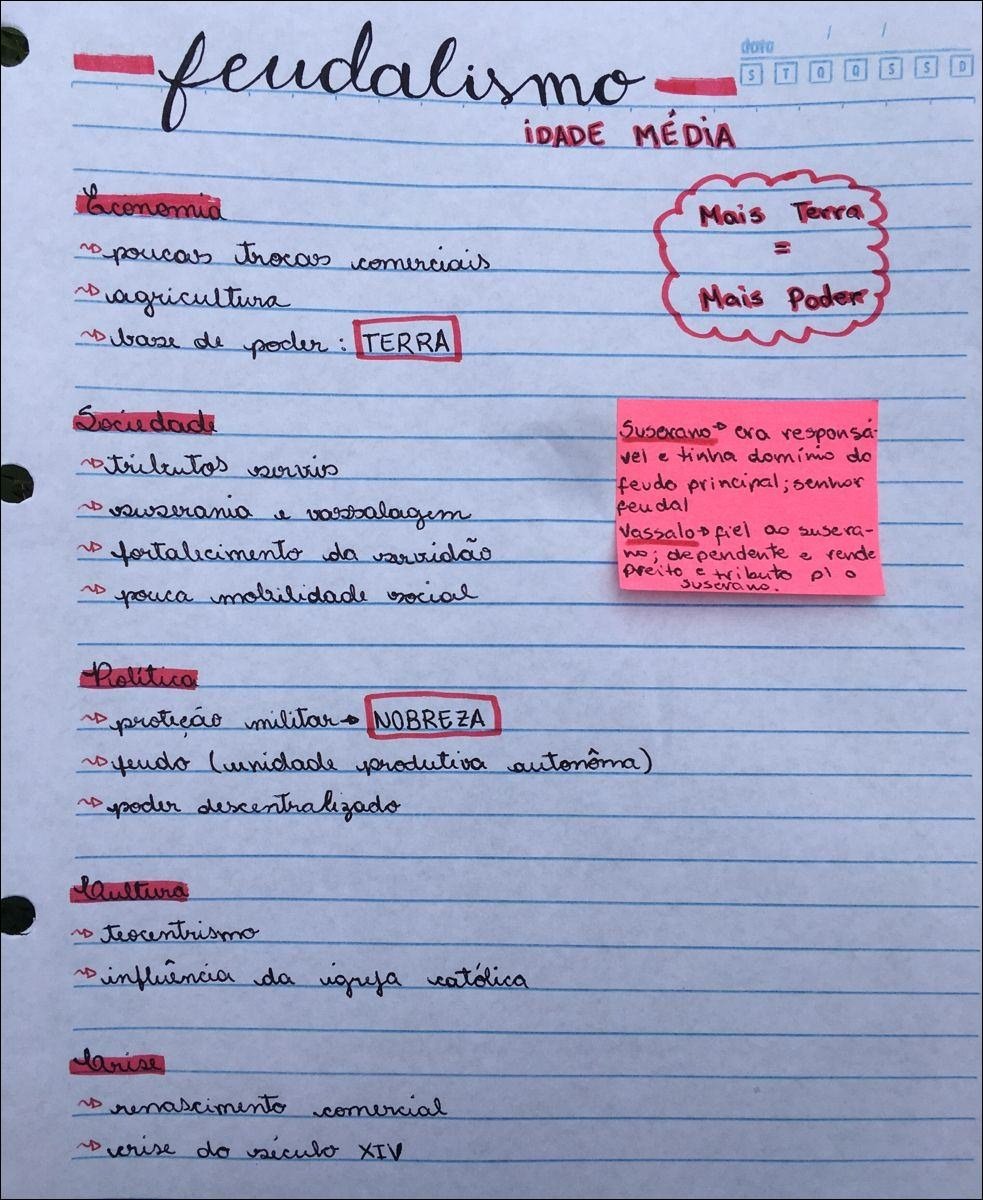 feudalismo
data / /
S T Q Q S S D
IDADE MÉDIA
Economia
poucas trocas comerciais
agricultura
base de poder: TERRA
Mais Terra
=
Mais Poder
Sociedade
tributos servis
suserania e vassalagem
fortalecimento da servidão
pouca mobilidade social
Suserano → era responsá-
vel e tinha domínio do
feudo principal; senhor
feudal
Vassalo → fiel ao susera-
no; dependente e rende
preito e tributo p/ o
suserano.
Política
proteção militar → NOBREZA
feudo (unidade produtiva autonôma)
poder descentralizado
Cultura
teocentrismo
influência da igreja católica
Crise
renascimento comercial
crise do século XIV